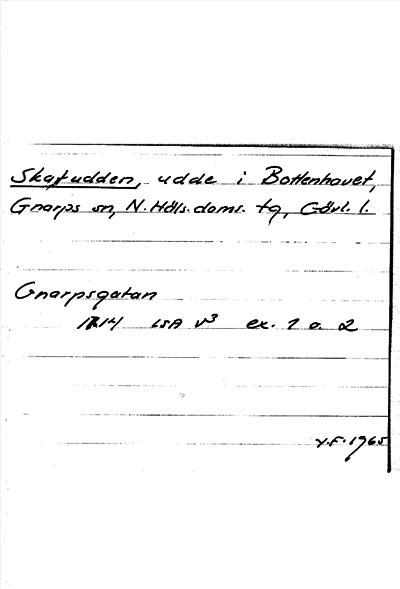 Skatudden, udde i Bottenhavet,
Gnarps sn, N. Häls. doms. tg, Gävl. l.
Gnarpsgatan
1714 LSA V3 ex. 1 o. 2
Y.F. 1965